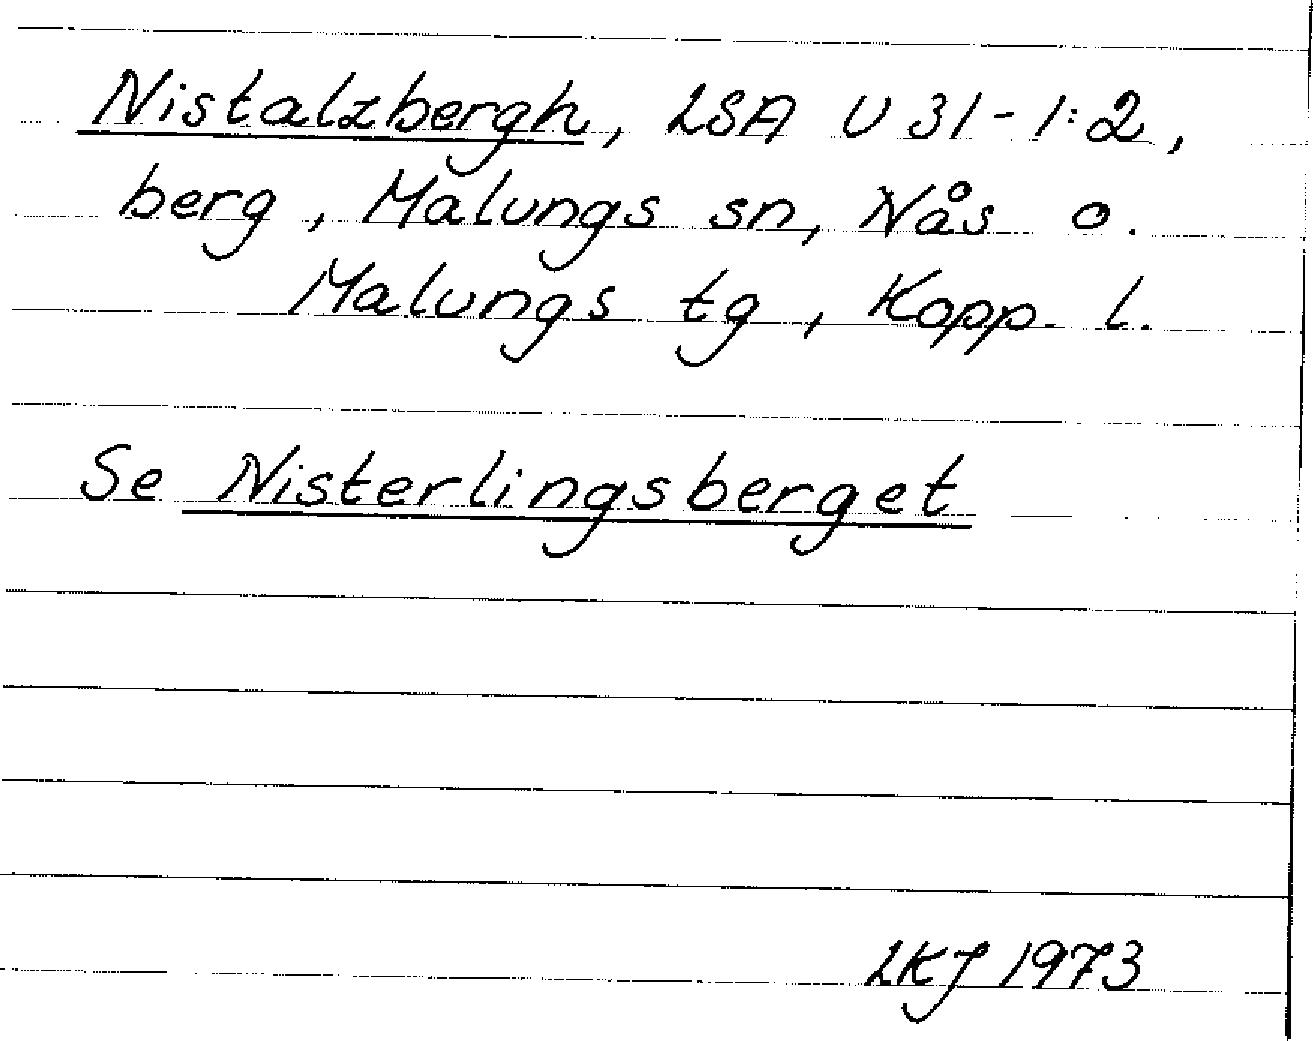 Nistalzbergh, LSA U 31-1:2,
berg, Malungs sn, Nås o.
Malungs tg, Kopp. l.
Se Nisterlingsberget
LKJ 1973